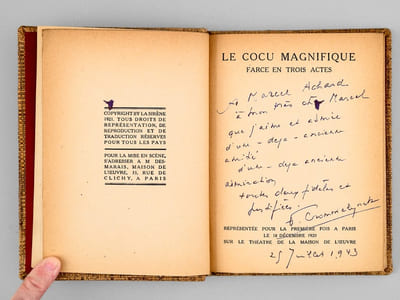 COPYRIGHT BY LA SIRÈNE
1921, TOUS DROITS DE
REPRÉSENTATION, DE
REPRODUCTION ET DE
TRADUCTION RÉSERVÉS
POUR TOUS LES PAYS
POUR LA MISE EN SCÈNE,
S'ADRESSER A M DES-
MARAIS, MAISON DE
L'ŒUVRE, 55, RUE DE
CLICHY, A PARIS
LE COCU MAGNIFIQUE
FARCE EN TROIS ACTES
A Marcel Achard
à mon très cher Marcel
que j'aime et admire
d'une - déjà - ancienne
amitié
d'une - déjà ancienne
admiration
toutes deux fidèles et
justifiées.
F. Crommelynck
REPRÉSENTÉE POUR LA PREMIÈRE FOIS A PARIS
LE 18 DÉCEMBRE 1920
SUR LE THEATRE DE LA MAISON DE L'ŒUVRE
25 Juillet 1943